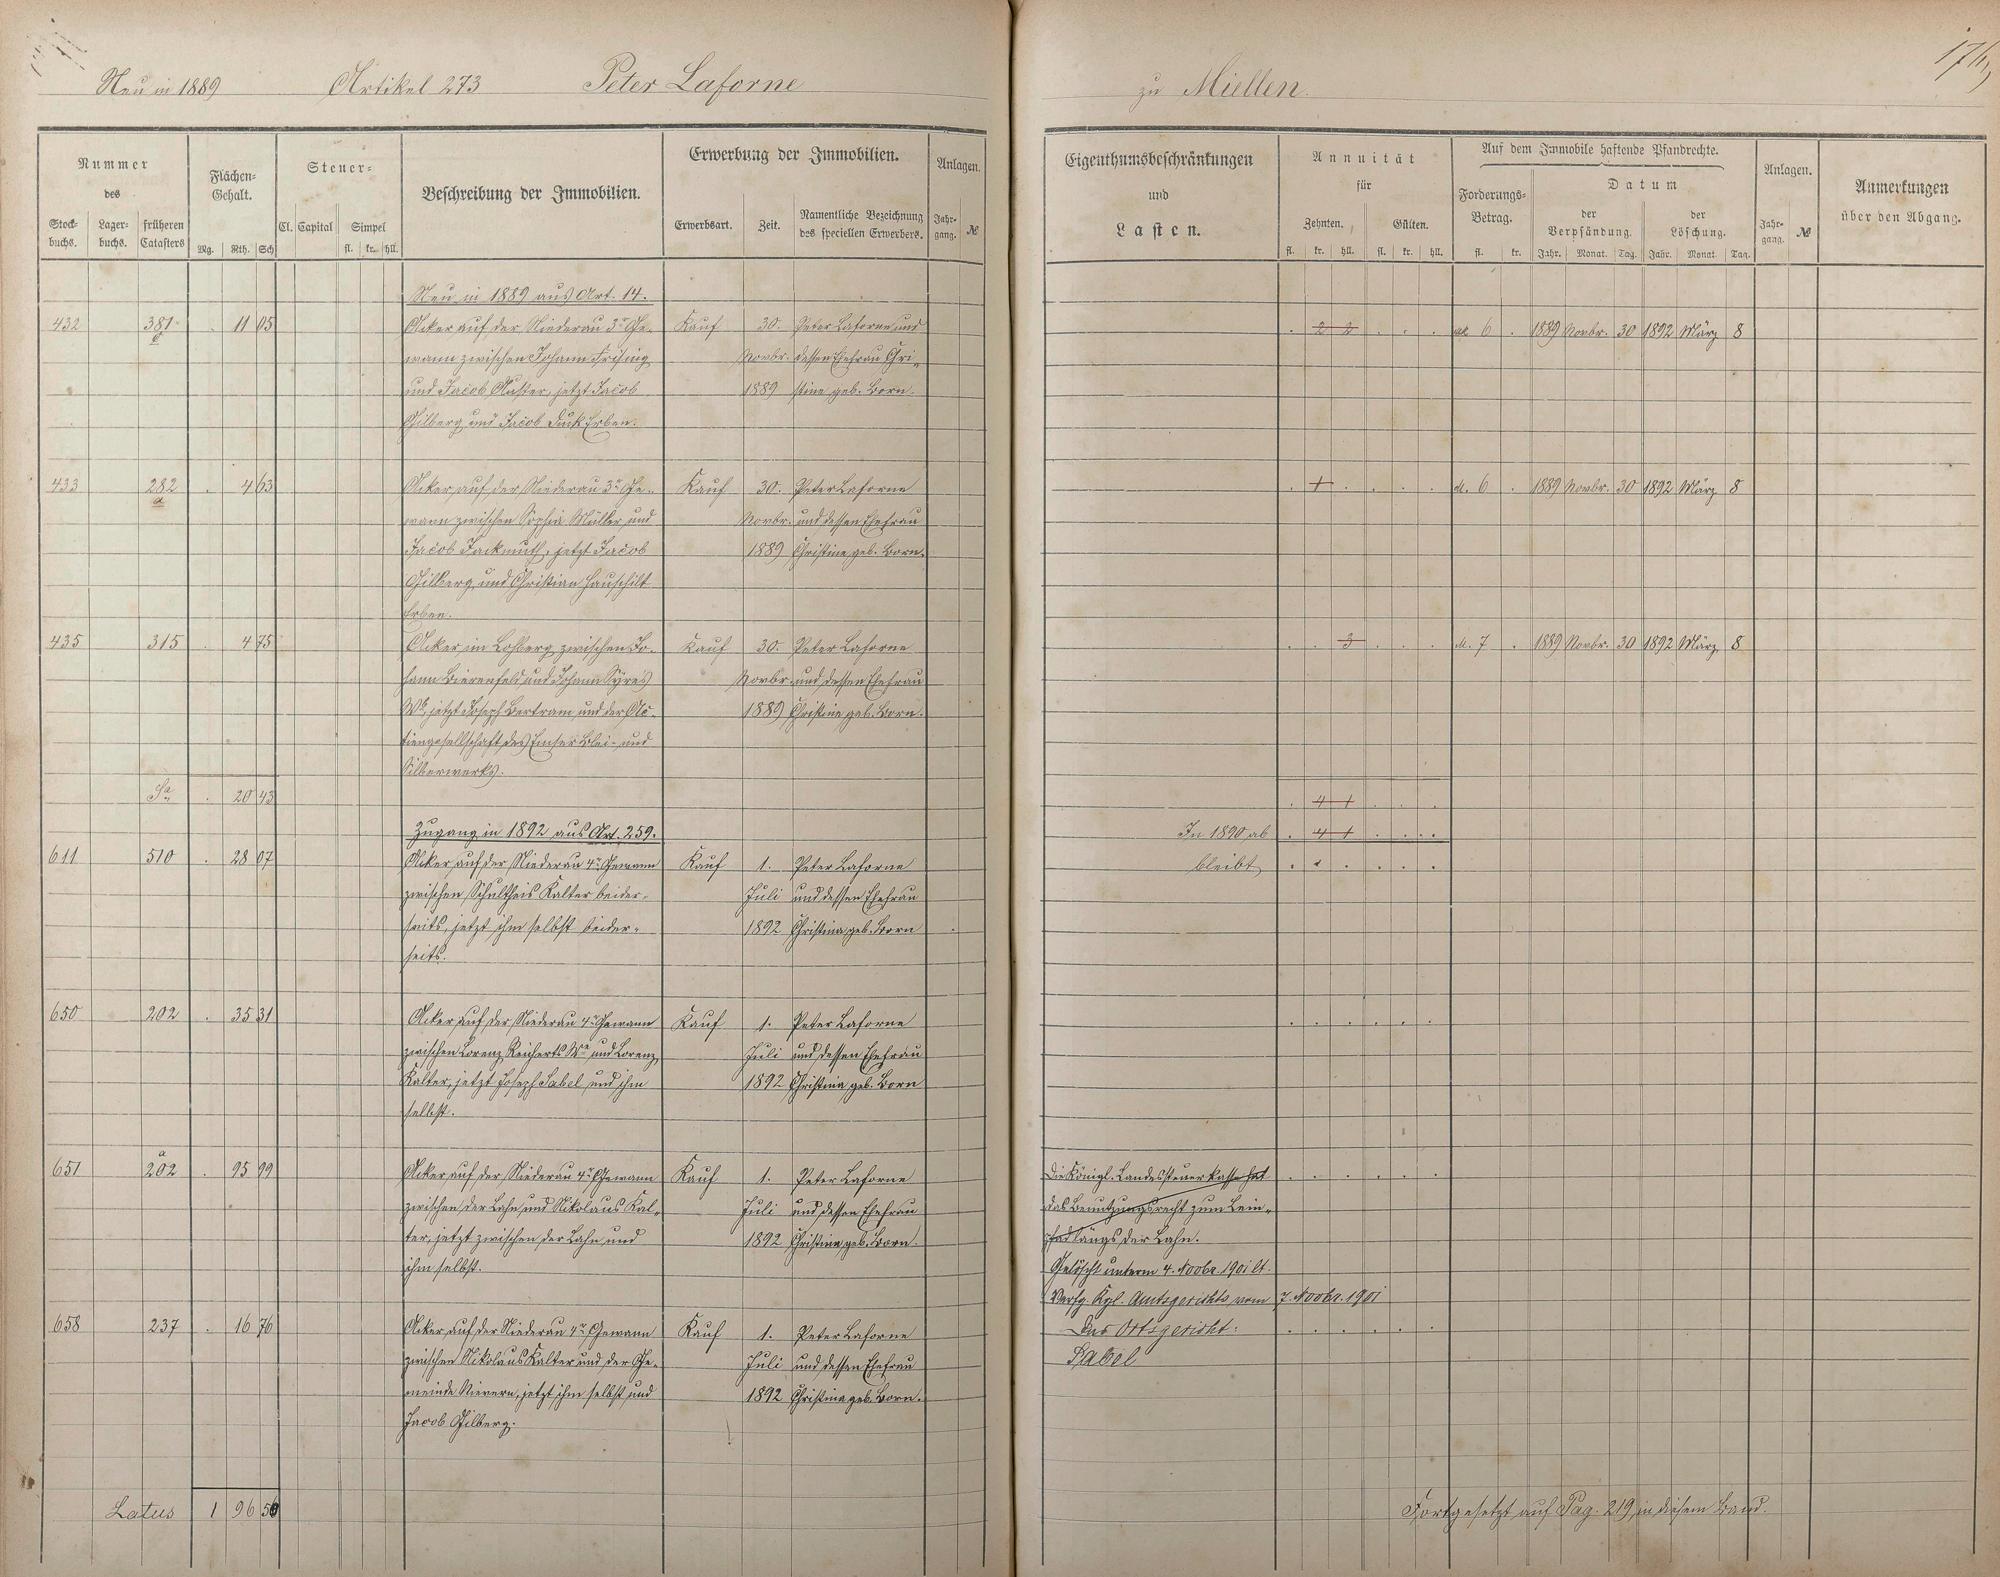 Neu in 1889 Artikel 273 Peter Laforne
zu Miellen.
Nummer
des
Stock-
buchs.
Lager-
buchs.
früheren
Catasters
Flächen-
Gehalt.
Mg. Rth. Sch
Steuer-
Cl. Capital Simpel
fl. kr. hll.
Beschreibung der Immobilien.
Erwerbung der Immobilien.
Erwerbsart. Zeit.
Namentliche Bezeichnung
des speciellen Erwerbers.
Anlagen.
Jahr-
gang.
№
Eigenthumsbeschränkungen
und
Lasten.
Annuität
für
Zehnten. Gülten.
fl. kr. hll. fl. kr. hll.
Auf dem Immobile haftende Pfandrechte.
Forderungs-
Betrag.
fl. kr.
Datum
der
Verpfändung.
Jahr. Monat. Tag.
der
Löschung.
Jahr. Monat. Tag.
Anlagen.
Jahr-
gang.
№
Anmerkungen
über den Abgang.
Neu in 1889 aus Art. 14.
432 381 11 05 Acker auf der Niederau 3r Ge- Kauf 30. Peter Laforne und 2 2 6 1889 Novbr. 30 1892 März 8
wann zwischen Johann Frising Novbr. dessen Ehefrau Chri-
und Jacob Auster, jetzt Jacob 1889 stine geb. Born.
Gilberg und Jacob Duck Erben.
433 282 a 4 63 Acker auf der Niederau 3r Ge- Kauf 30. Peter Laforne 1 M. 6 1889 Novbr. 30 1892 März 8
wann zwischen Sophia Müller und Novbr. und dessen Ehefrau
Jacob Fackmuth, jetzt Jacob 1889 Christina geb. Born.
Gilberg und Christian Hauschilt
Erben.
435 315 4 75 Acker im Lohberg zwischen Jo- Kauf 30. Peter Laforne 3 M. 7 1889 Novbr. 30 1892 März 8
hann Bierenfeld und Johann Syres Novbr. und dessen Ehefrau
We, jetzt Joseph Bertram und der Ac- 1889 Christina geb. Born.
tiengesellschaft des Emser Blei- und
Silberwerks.
Sa 20 43 4 1
Zugang in 1892 aus Art. 259. In 1890 ab 4 1
611 510 28 07 Acker auf der Niederau 4r Gewann Kauf 1. Peter Laforne bleibt
zwischen Schultheis Kalter beider- Juli und dessen Ehefrau
seits, jetzt ihm selbst beider- 1892 Christina geb. Born
seits.
650 202 35 31 Acker auf der Niederau 4r Gewann Kauf 1. Peter Laforne
zwischen Lorenz Reicherts We und Lorenz Juli und dessen Ehefrau
Kalter, jetzt Joseph Sabel und ihm 1892 Christina geb. Born
selbst.
651 202 a 95 99 Acker auf der Niederau 4r Gewann Kauf 1. Peter Laforne Die Königl. Landessteuerkasse hat
zwischen der Lahn und Nikolaus Kal- Juli und dessen Ehefrau das Benutzungsrecht zum Lein-
ter, jetzt zwischen der Lahn und 1892 Christina geb. Born. pfad längs der Lahn.
ihm selbst. Gelöscht unterm 4. Novbr. 1901 lt.
Verfg. Kgl. Amtsgerichts vom 7. Novbr. 1901
658 237 16 76 Acker auf der Niederau 4r Gewann Kauf 1. Peter Laforne Das Ortsgericht:
zwischen Nikolaus Kalter und der Ge- Juli und dessen Ehefrau Sabel
meinde Nievern, jetzt ihm selbst und 1892 Christina geb. Born.
Jacob Gilberg.
Latus 1 96 56 Fortgesetzt auf Pag. 219 in diesem Band.